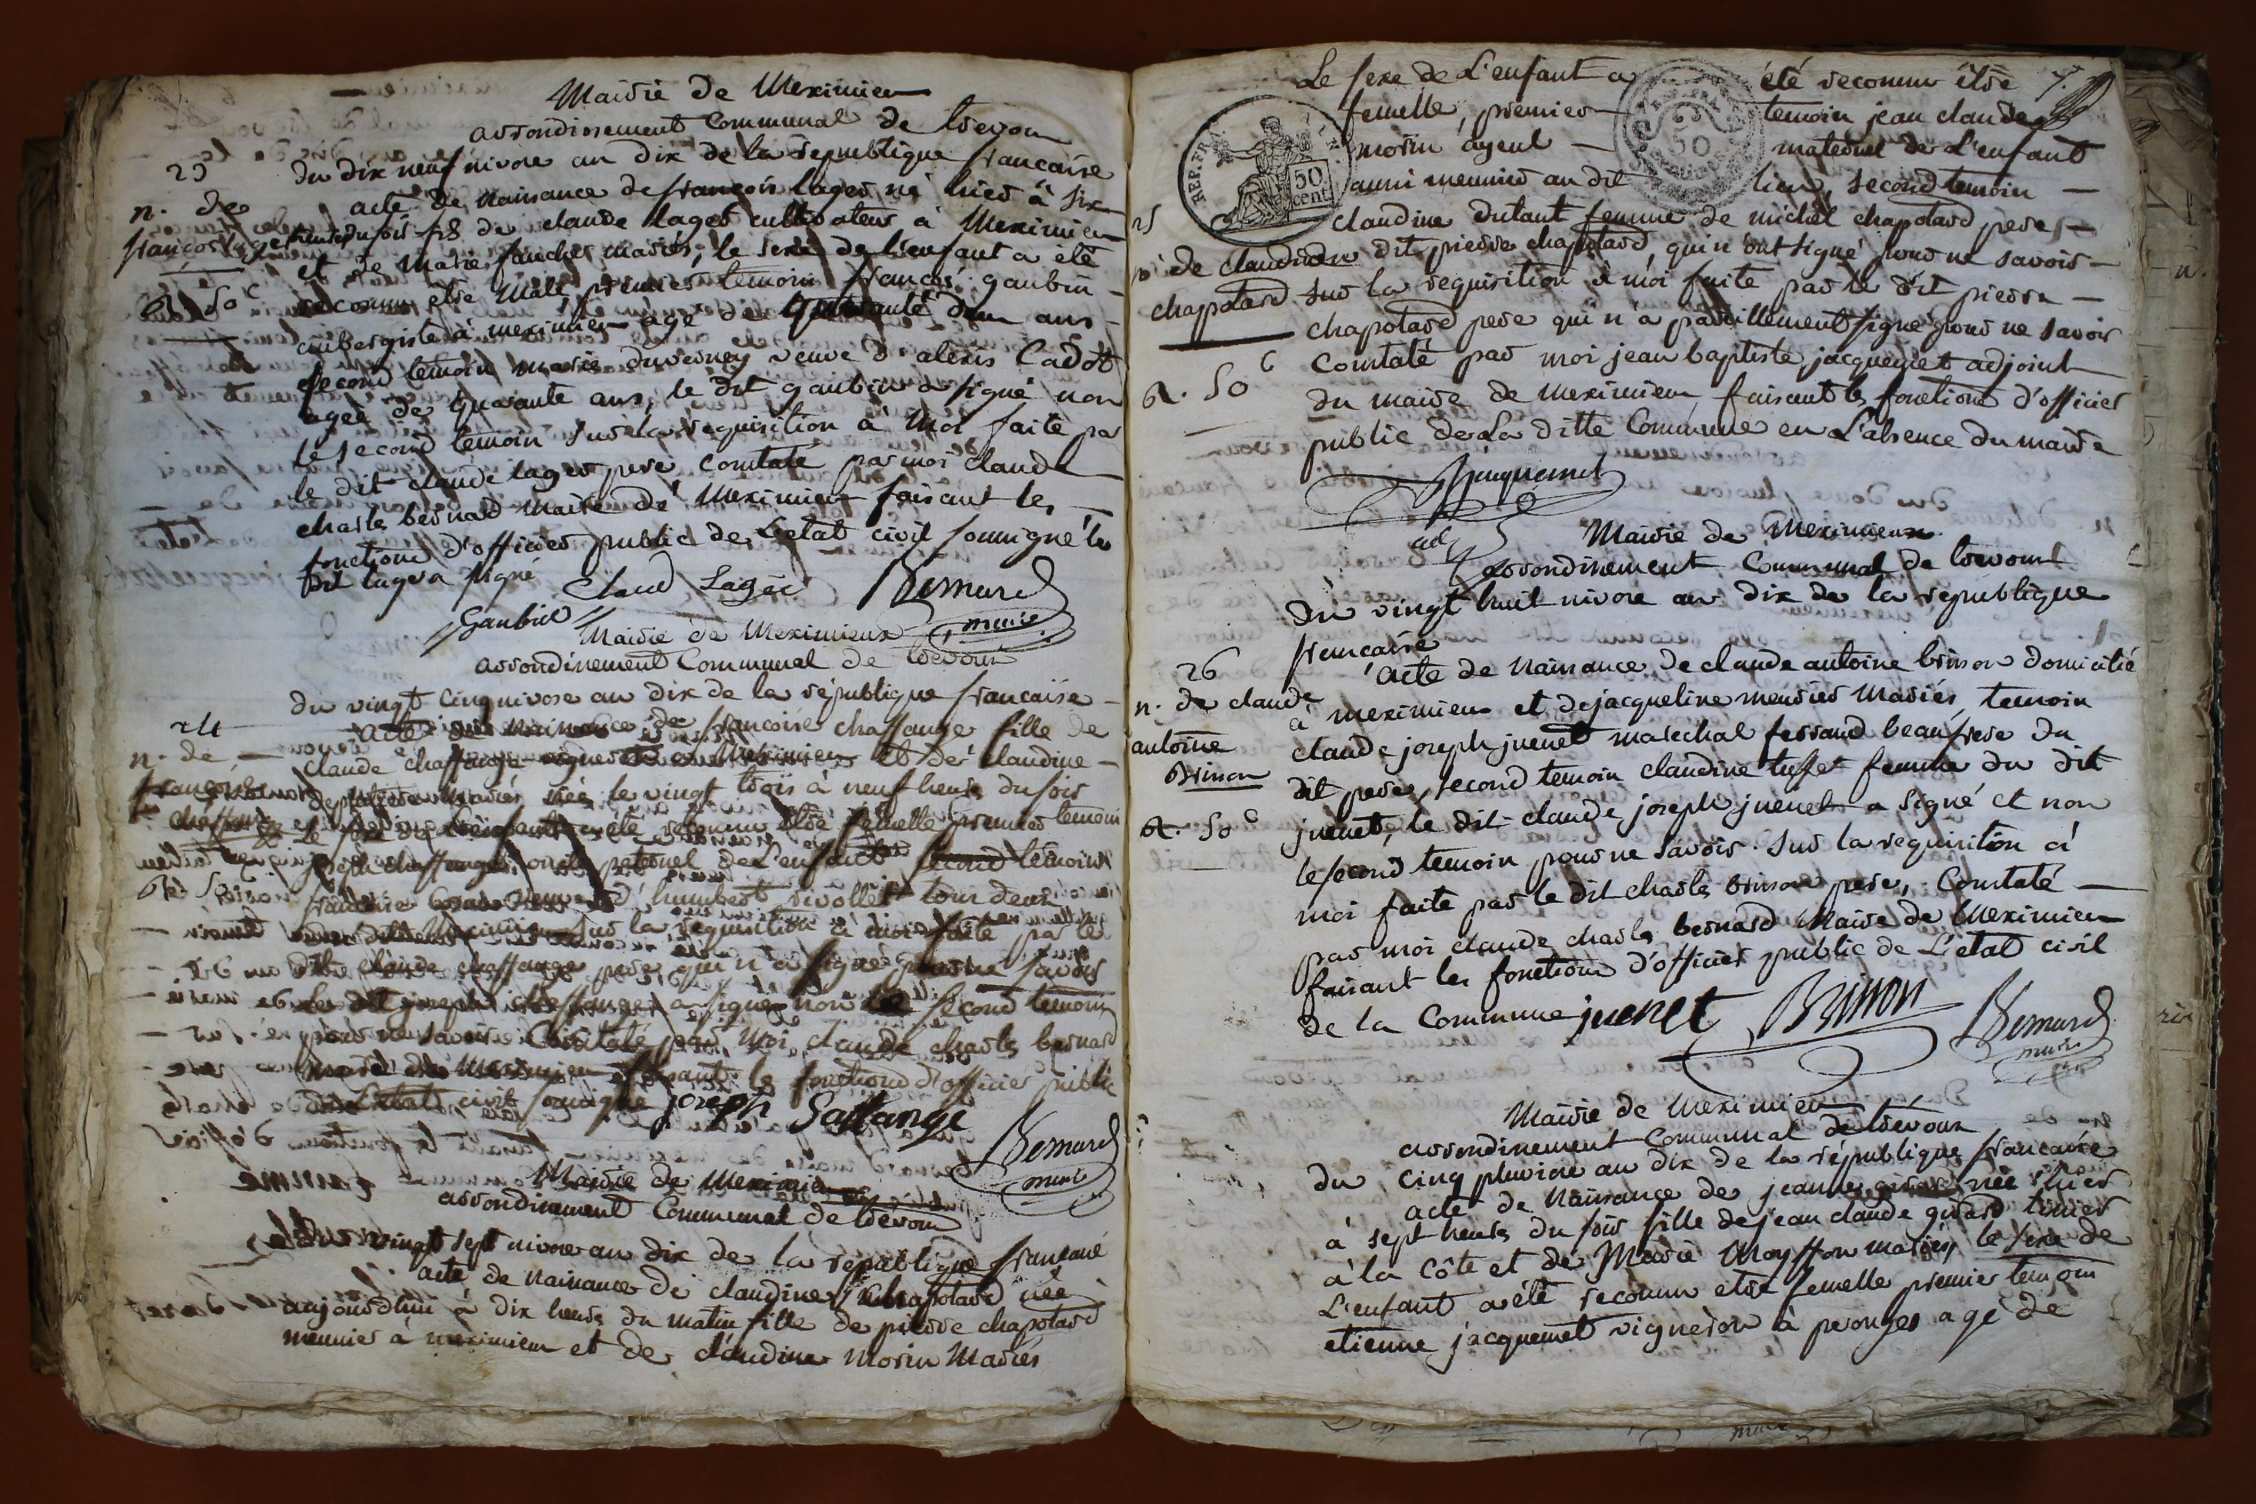 Mairie de Meximieu
arrondissement Communal de trevou
23
du dix neuf nivose an dix de la republique francaise
n. de
acte de naissance de francois lager né hier à six
francois lager
heures du soir fils de claude lager cultivateur à Meximieu
et de marie faucher mariés, le sexe de l'enfant a été
6. 50 c
reconnu etre male premier temoin francois gaubin
aubergiste à meximieu agé de quarante deux ans
second temoin marie duverney veuve d'alexis Cadot
agée de quarante ans, le dit gaubin a signé non
le second temoin sur la requisition à moi faite par
le dit claude lager pere constaté par moi claude
charles bernard maire de Meximieu faisant les
fonctions d'officier public de l'etat civil soussigné le
dit lager a signé
Claud Lager
Bernard
maire
Gaubin
Mairie de Meximieux
arrondissement Communal de trevoux
du vingt cinq nivose an dix de la république francaise
24
acte de naissance de francoise chaffange fille de
n. de
claude chaffange vigneron à Meximieu et de claudine
francoise
mariés née le vingt trois à neuf heures du soir
chaffange
le sexe de l'enfant a été reconnu etre femelle premier temoin
joseph chaffange oncle paternel de l'enfant second temoin
6. 50 c
francoise veuve d'humbert rivollet tous deux
Meximieu sur la requisition à moi faite par le
dit claude chaffange pere, qui n'a signé pour ne savoir
le dit joseph chaffange a signé non le second temoin
pour ne savoir Constaté par moi claude charles bernard
maire de Meximieu faisant les fonctions d'officier public
de L'etat civil soussigné
joseph Saffange
Bernard
maire
Mairie de Meximieu
arrondissement Communal de trevou
vingt sept nivose an dix de la république francaise
acte de naissance de claudine Chapotard née
aujourdhui à dix heures du matin fille de pierre chapotard
meunier à meximieu et de claudine Morin Mariés
7.
Le sexe de L'enfant a été reconnu etre
femelle, premier temoin jean claude
morin ayeul maternel de L'enfant
aussi meunier au dit lieu, second temoin
REP. FRA.
50 cent
50
25
claudine dutant femme de michel chapotard pere
n. de claudine
du dit pierre chapotard, qui n'ont signé pour ne savoir
chapotard
sur la requisition à moi faite par le dit pierre
chapotard pere qui n'a pareillement signé pour ne savoir
6. 50 c
Constaté par moi jean baptiste jacquemet adjoint
du maire de Meximieu faisant les fonctions d'officier
public de La ditte Commune en L'absence du maire
Jacquemet
adj
Mairie de Meximieux
arrondissement Communal de trevoux
du vingt huit nivose an dix de la république
francaise
26
acte de Naissance de claude antoine brisson domicilié
n. de claude
à meximieu et de jacqueline meusier Mariés, temoin
antoine
claude joseph juenet marechal ferrand beaufrere du
Brisson
dit pere, second temoin claudine femme du dit
6. 50 c
juenet, le dit claude joseph juenet a signé et non
le second temoin pour ne savoir sur la requisition à
moi faite par le dit charles brisson pere, Constaté
par moi claude charles bernard Maire de Meximieu
faisant les fonctions d'officier public de L'etat civil
de la Commune
juenet
Brisson
Bernard
maire
Mairie de Meximieu
arrondissement Communal de trévoux
du cinq pluviose an dix de la république francaise
acte de Naissance de jeanne née hier
à sept heures du soir fille de jean claude girard
à la Côte et de Marie Moyffon mariés, le sexe de
L'enfant a été reconnu etre femelle premier temoin
etienne jacquemet vigneron à perouges agé de